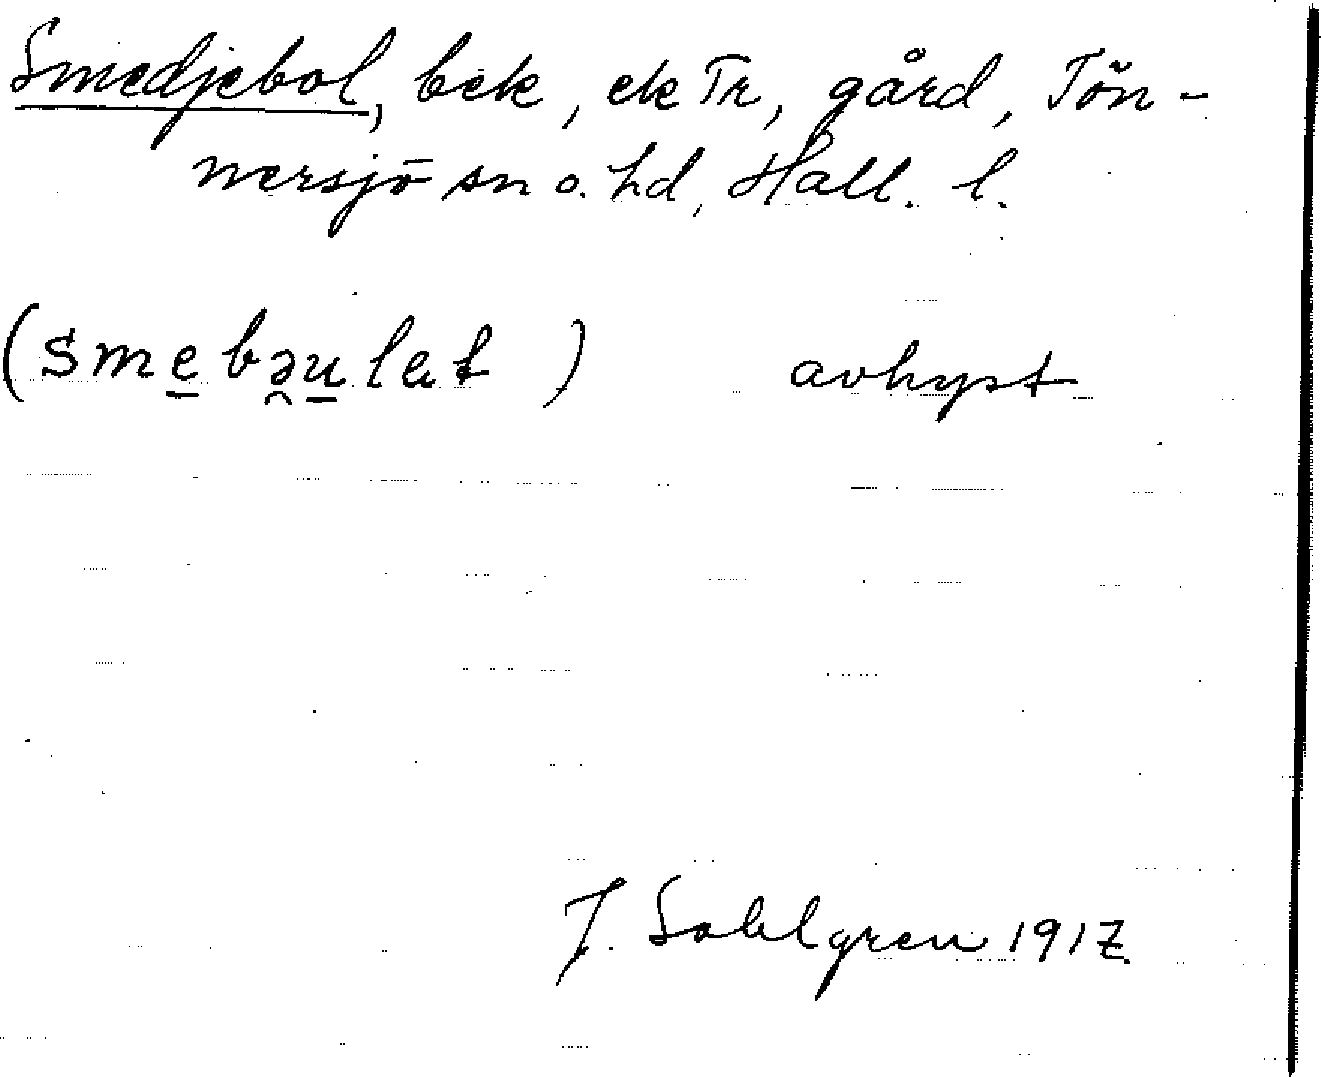 Smedjebol, bek, ek Tr, gård, Tön-
nersjö sn o. hd, Hall. l.
(smebəulet) avhyst
J. Sahlgren 1917.